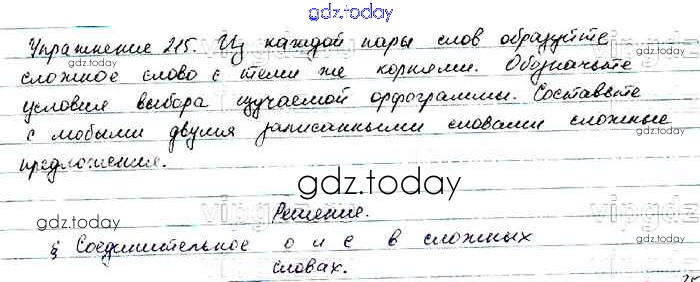 gdz.today
Упражнение 215. Из каждой пары слов образуйте
сложное слово с теми же корнями. Обозначьте
условия выбора изучаемой орфограммы. Составьте
с любыми двумя записанными словами сложные
предложения.
gdz.today
gdz.today
gdz.today
Решение.
§ Соединительное о и е в сложных
словах.